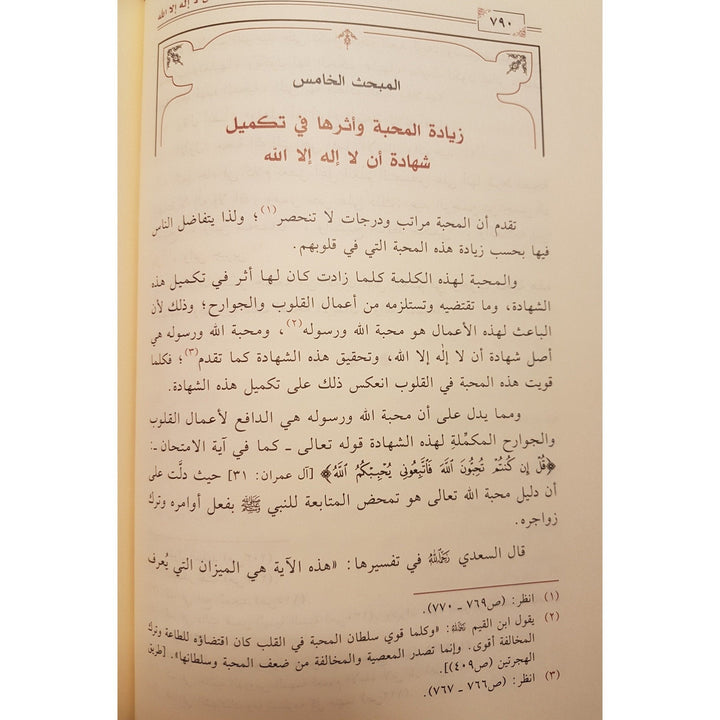 لا إله إلا الله
٧٩٠
المبحث الخامس
زيادة المحبة وأثرها في تكميل
شهادة أن لا إله إلا الله
تقدم أن المحبة مراتب ودرجات لا تنحصر(١)؛ ولذا يتفاضل الناس
فيها بحسب زيادة هذه المحبة التي في قلوبهم.
والمحبة لهذه الكلمة كلما زادت كان لها أثر في تكميل هذه
الشهادة، وما تقتضيه وتستلزمه من أعمال القلوب والجوارح؛ وذلك لأن
الباعث لهذه الأعمال هو محبة الله ورسوله(٢)، ومحبة الله ورسوله هي
أصل شهادة أن لا إلٰه إلا الله، وتحقيق هذه الشهادة كما تقدم(٣)؛ فكلما
قويت هذه المحبة في القلوب انعكس ذلك على تكميل هذه الشهادة.
ومما يدل على أن محبة الله ورسوله هي الدافع لأعمال القلوب
والجوارح المكمِّلةِ لهذه الشهادة قوله تعالى ـ كما في آية الامتحان ـ:
﴿قُلْ إِن كُنتُمْ تُحِبُّونَ اللَّهَ فَاتَّبِعُونِي يُحْبِبْكُمُ اللَّهُ﴾ [آل عمران: ٣١] حيث دلَّت على
أن دليل محبة الله تعالى هو تمحض المتابعة للنبي ﷺ بفعل أوامره وترك
زواجره.
قال السعدي رَحِمَهُ اللهُ في تفسيرها: «هذه الآية هي الميزان التي يُعرف
(١) انظر: (ص٧٦٩ ـ ٧٧٠).
(٢) يقول ابن القيم رَحِمَهُ اللهُ: «وكلما قوي سلطان المحبة في القلب كان اقتضاؤه للطاعة وترك
المخالفة أقوى. وإنما تصدر المعصية والمخالفة من ضعف المحبة وسلطانها». [طريق
الهجرتين (ص٤٠٩)].
(٣) انظر: (ص٧٦٦ ـ ٧٦٧).